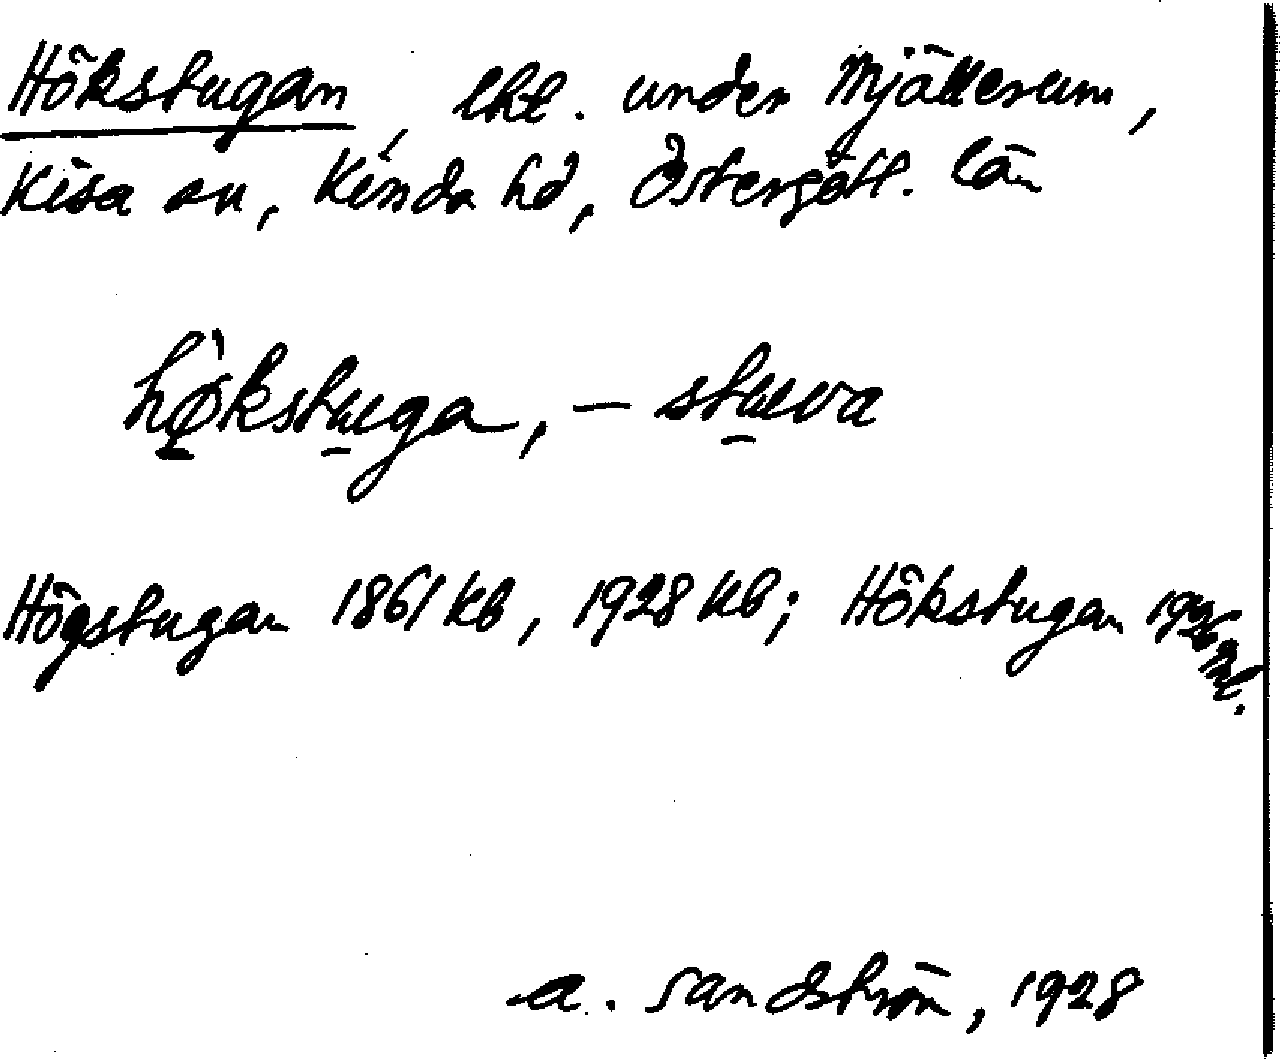 Hökstugan, lht. under Mjällerum,
Kisa sn, Kinda hd, Östergötl. län
hø̀kstuga, – stuva
Högstugan 1861 kb, 1928 kb; Hökstugan 1926 ml.
A. Sandström, 1928